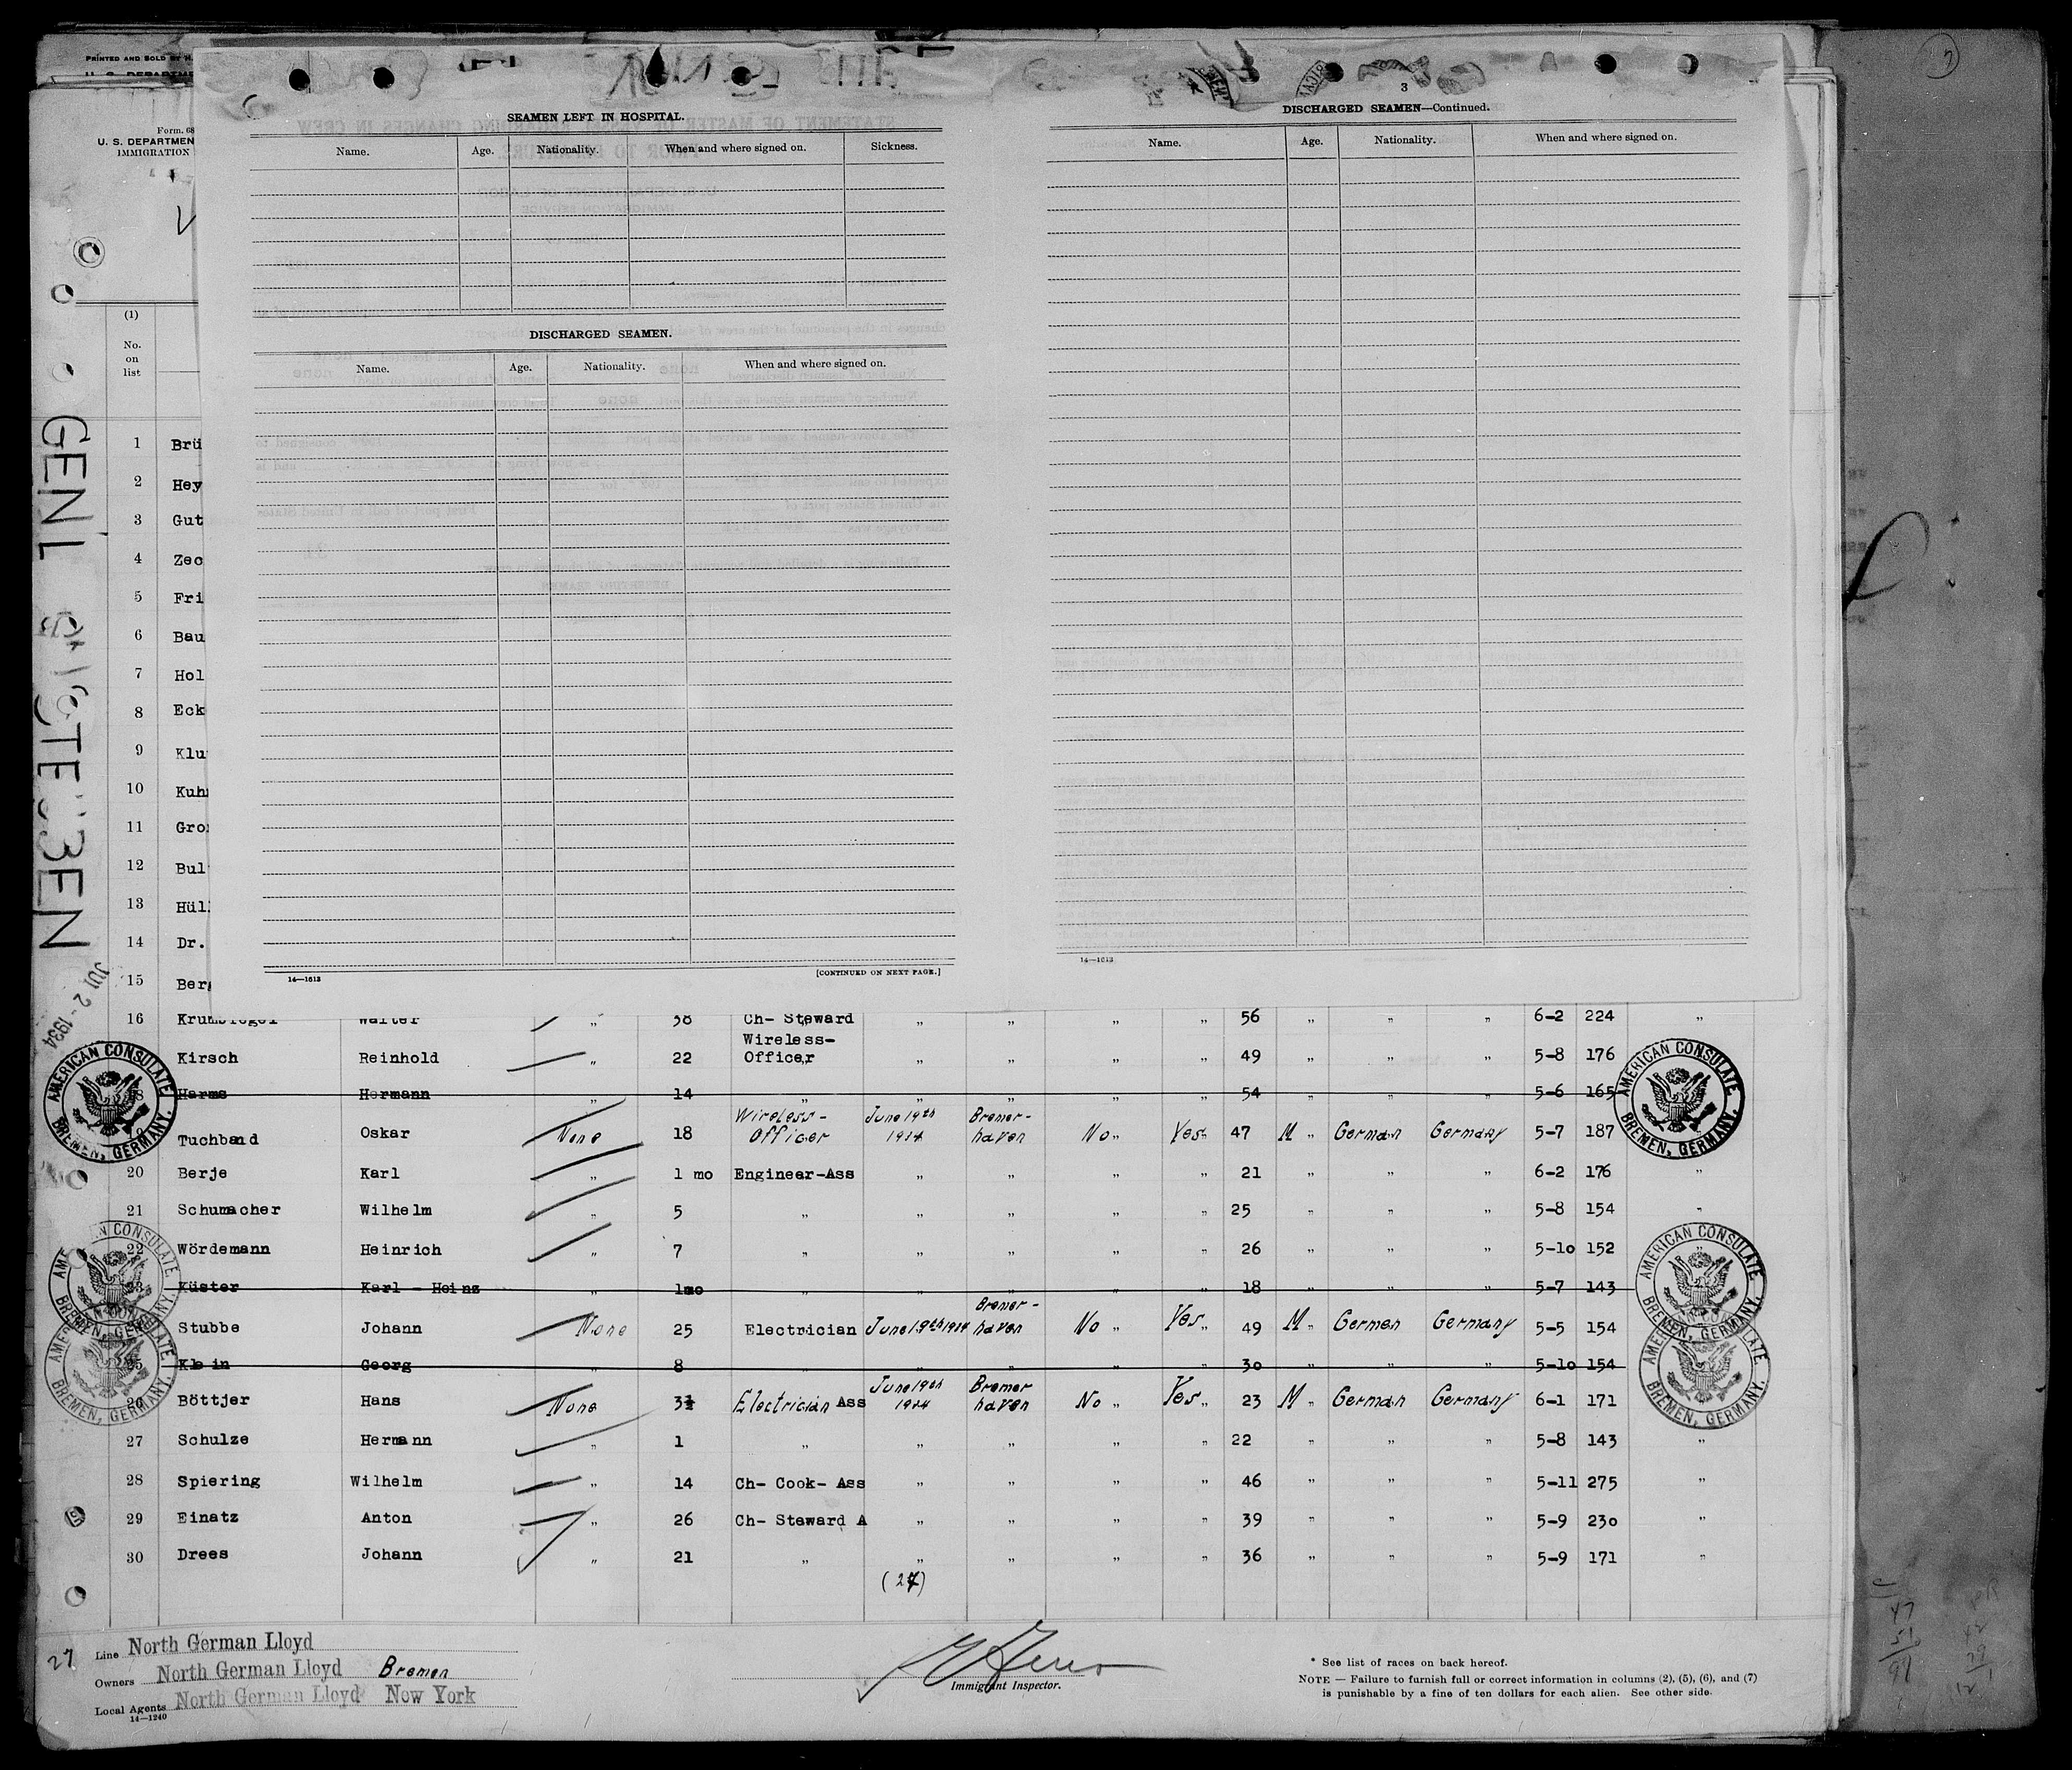 PRINTED AND SOLD BY
Form. 68
U. S. DEPARTMEN
IMMIGRATION
3
SEAMEN LEFT IN HOSPITAL.
Name. Age. Nationality. When and where signed on. Sickness.
DISCHARGED SEAMEN.
Name. Age. Nationality. When and where signed on.
14—1613
[CONTINUED ON NEXT PAGE.]
DISCHARGED SEAMEN—Continued.
Name. Age. Nationality. When and where signed on.
14—1613
(1)
No.
on
list
1 Brü
2 Hey
3 Gut
4 Zec
5 Fri
6 Bau
7 Hol
8 Eck
9 Klu
10 Kuh
11 Gro
12 Bul
13 Hül
14 Dr.
15 Ber
16 Krumbiegel Walter " 38 Ch- Steward " " " " 56 " " " 6-2 224 "
Kirsch Reinhold " 22 Wireless-Officer " " " " 49 " " " 5-8 176
Harms Hermann " 14 " " " " " 54 " " " 5-6 165
Tuchband Oskar None 18 Wireless-Officer June 19th 1934 Bremer-haven No " Yes " 47 M " German Germany 5-7 187
20 Berje Karl " 1 mo Engineer-Ass " " " " 21 " " " 6-2 176 "
21 Schumacher Wilhelm " 5 " " " " " 25 " " " 5-8 154 "
22 Wördemann Heinrich " 7 " " " " " 26 " " " 5-10 152 "
23 Küster Karl - Heinz " 1mo " " " " " 18 " " " 5-7 143
Stubbe Johann None 25 Electrician June 19th 1934 Bremer-haven No " Yes " 49 M " German Germany 5-5 154
25 Klein Georg " 8 " " " " 30 " " " 5-10 154
26 Böttjer Hans None 3½ Electrician Ass June 19th 1934 Bremer haven No " Yes " 23 M " German Germany 6-1 171
27 Schulze Hermann " 1 " " " " " 22 " " " 5-8 143 "
28 Spiering Wilhelm " 14 Ch- Cook- Ass " " " " 46 " " " 5-11 275 "
29 Einatz Anton " 26 Ch- Steward A " " " " 39 " " " 5-9 230 "
30 Drees Johann " 21 " " " " " 36 " " " 5-9 171 "
(27)
GEN'L
STEUBEN
JUL 2 - 1934
AMERICAN CONSULATE
BREMEN, GERMANY.
AMERICAN CONSULATE
BREMEN, GERMANY.
AMERICAN CONSULATE
BREMEN, GERMANY.
AMERICAN CONSULATE
BREMEN, GERMANY.
BREMEN, GERMANY.
BREMEN, GERMANY.
27
Line North German Lloyd
Owners North German Lloyd Bremen
Local Agents North German Lloyd New York
14—1240
Immigrant Inspector.
* See list of races on back hereof.
NOTE — Failure to furnish full or correct information in columns (2), (5), (6), and (7)
is punishable by a fine of ten dollars for each alien. See other side.
47
51